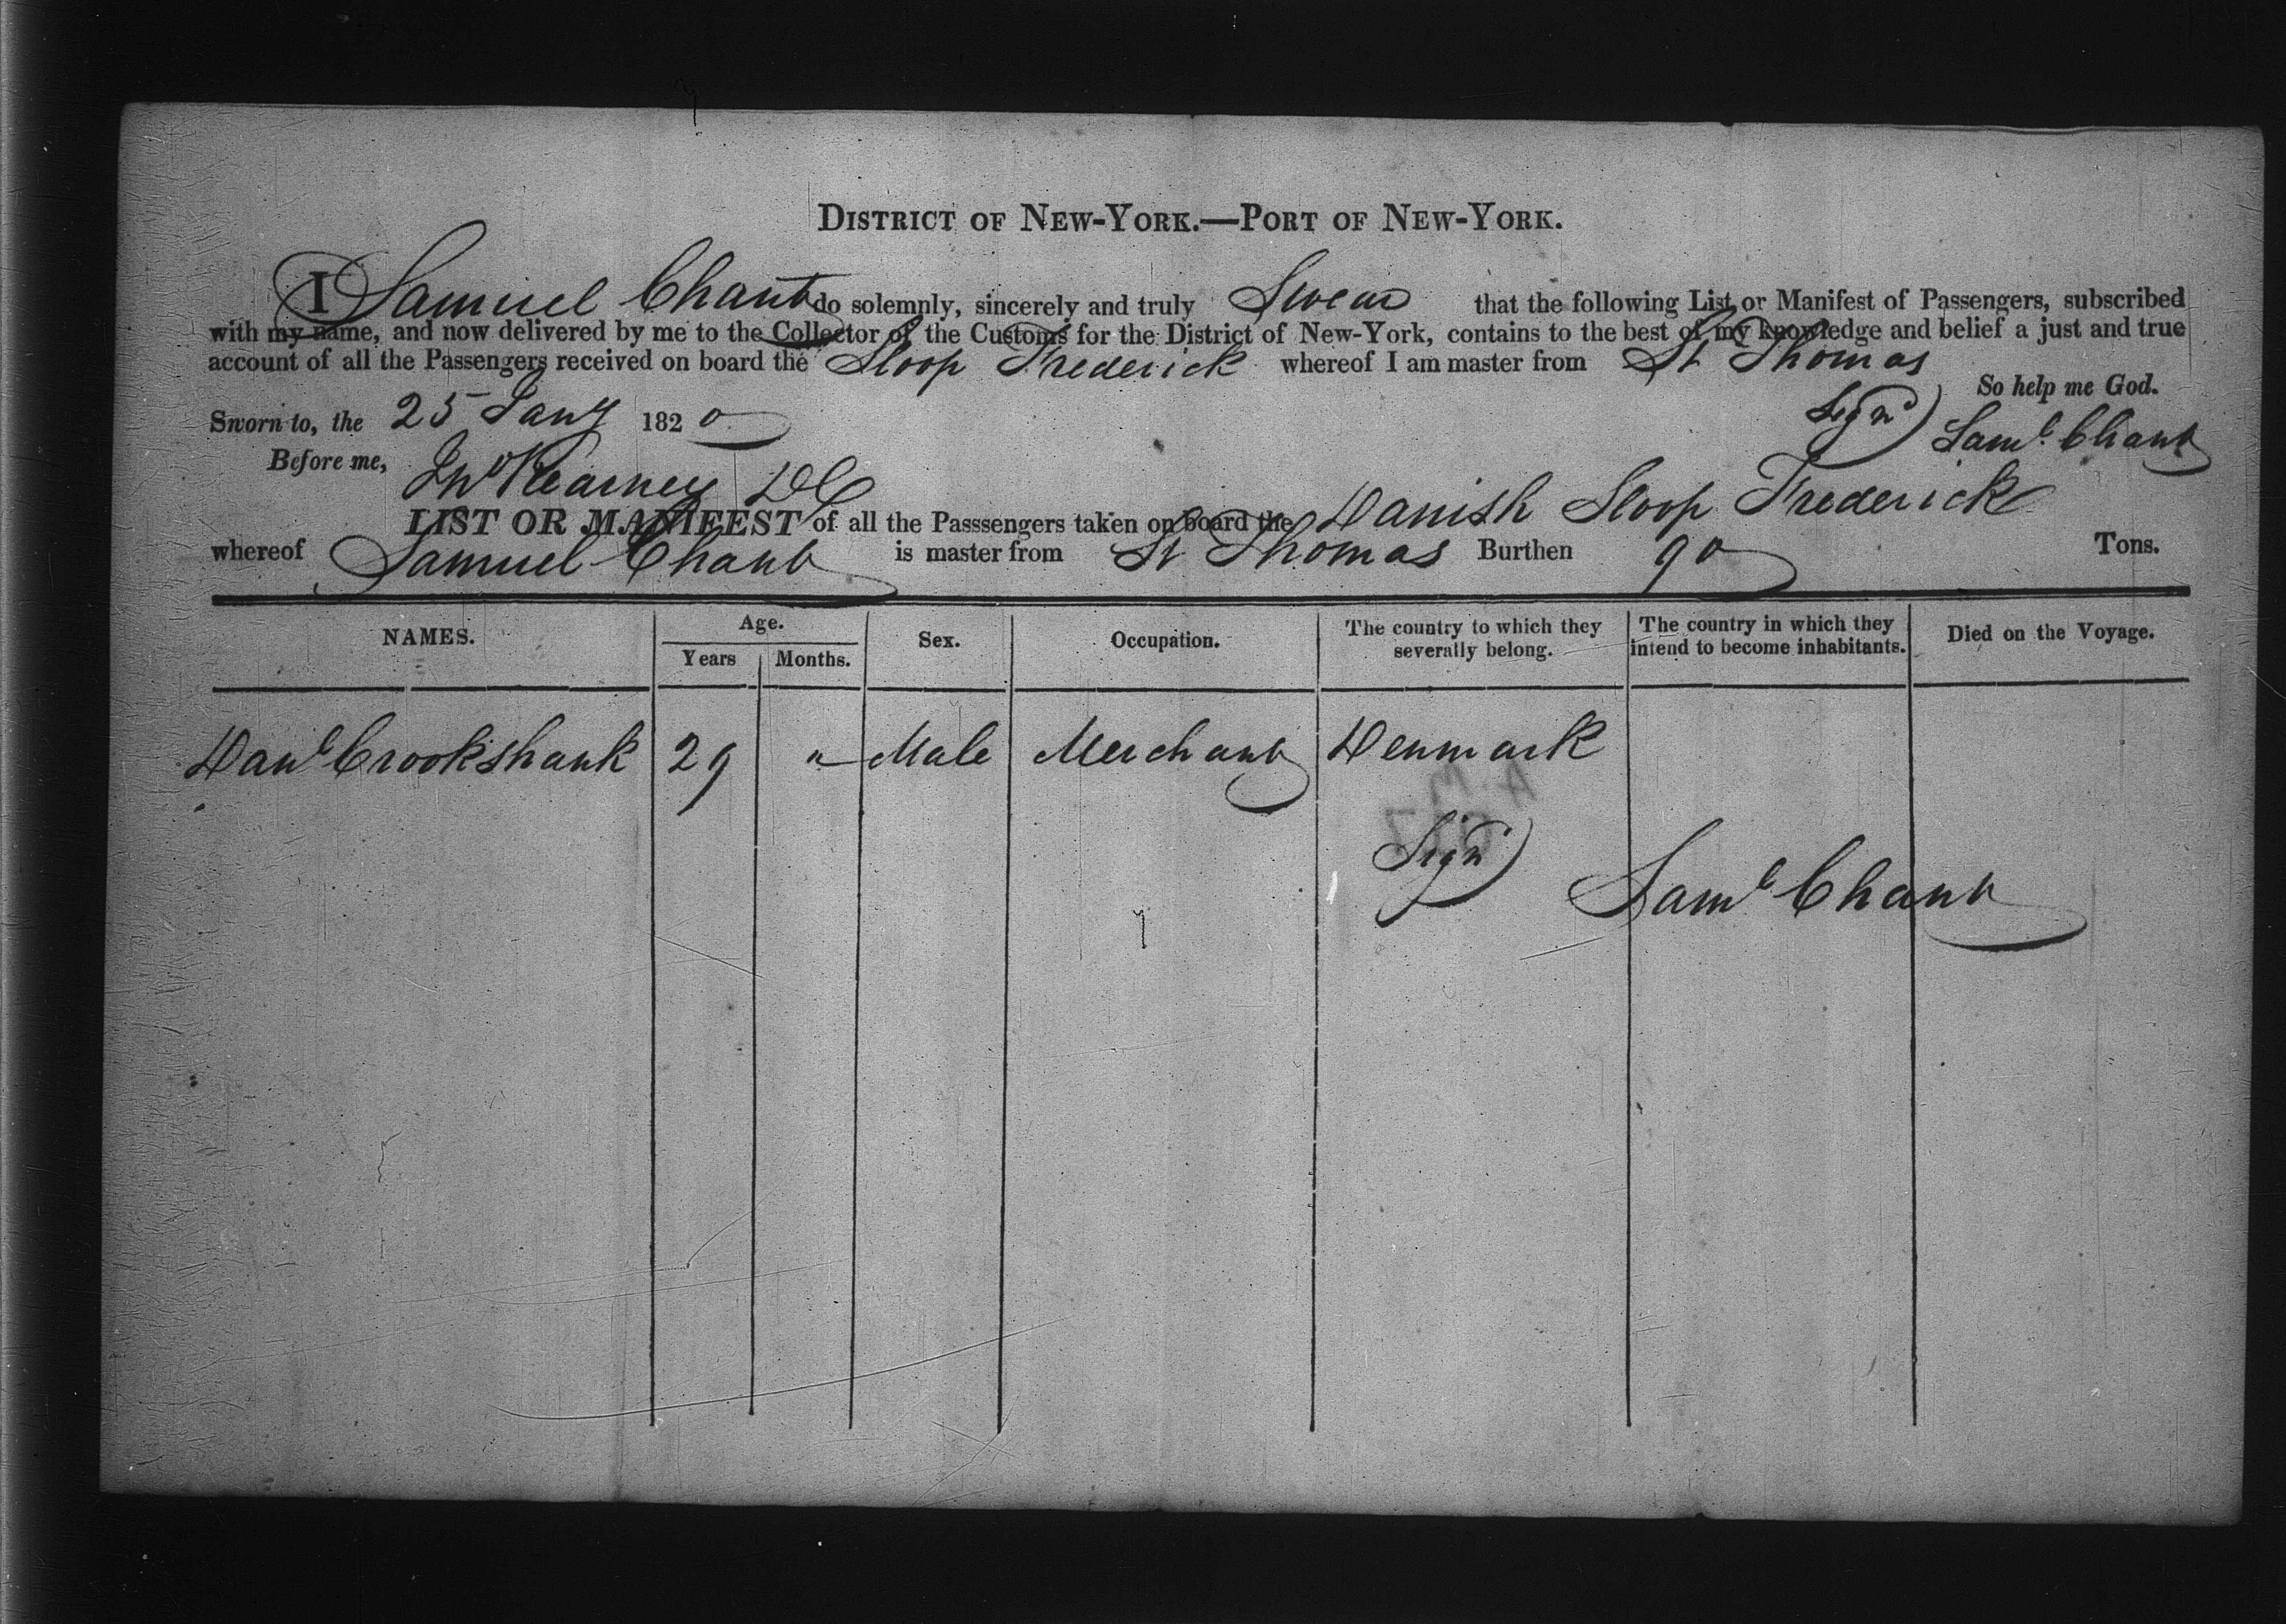 DISTRICT OF NEW-YORK.—PORT OF NEW-YORK.
I Samuel Chant do solemnly, sincerely and truly Swear that the following List or Manifest of Passengers, subscribed
with my name, and now delivered by me to the Collector of the Customs for the District of New-York, contains to the best of my knowledge and belief a just and true
account of all the Passengers received on board the Sloop Frederick whereof I am master from St Thomas
So help me God.
Sworn to, the 25 Jany 1820
Signd Saml Chant
Before me, Jno Kearney DC
LIST OR MANIFEST of all the Passsengers taken on board the Danish Sloop Frederick
whereof Samuel Chant is master from St Thomas Burthen 90 Tons.
NAMES. Age. Years Months. Sex. Occupation. The country to which they severally belong. The country in which they intend to become inhabitants. Died on the Voyage.
Danl Crookshank 29 " Male Merchant Denmark
Signd Saml Chant